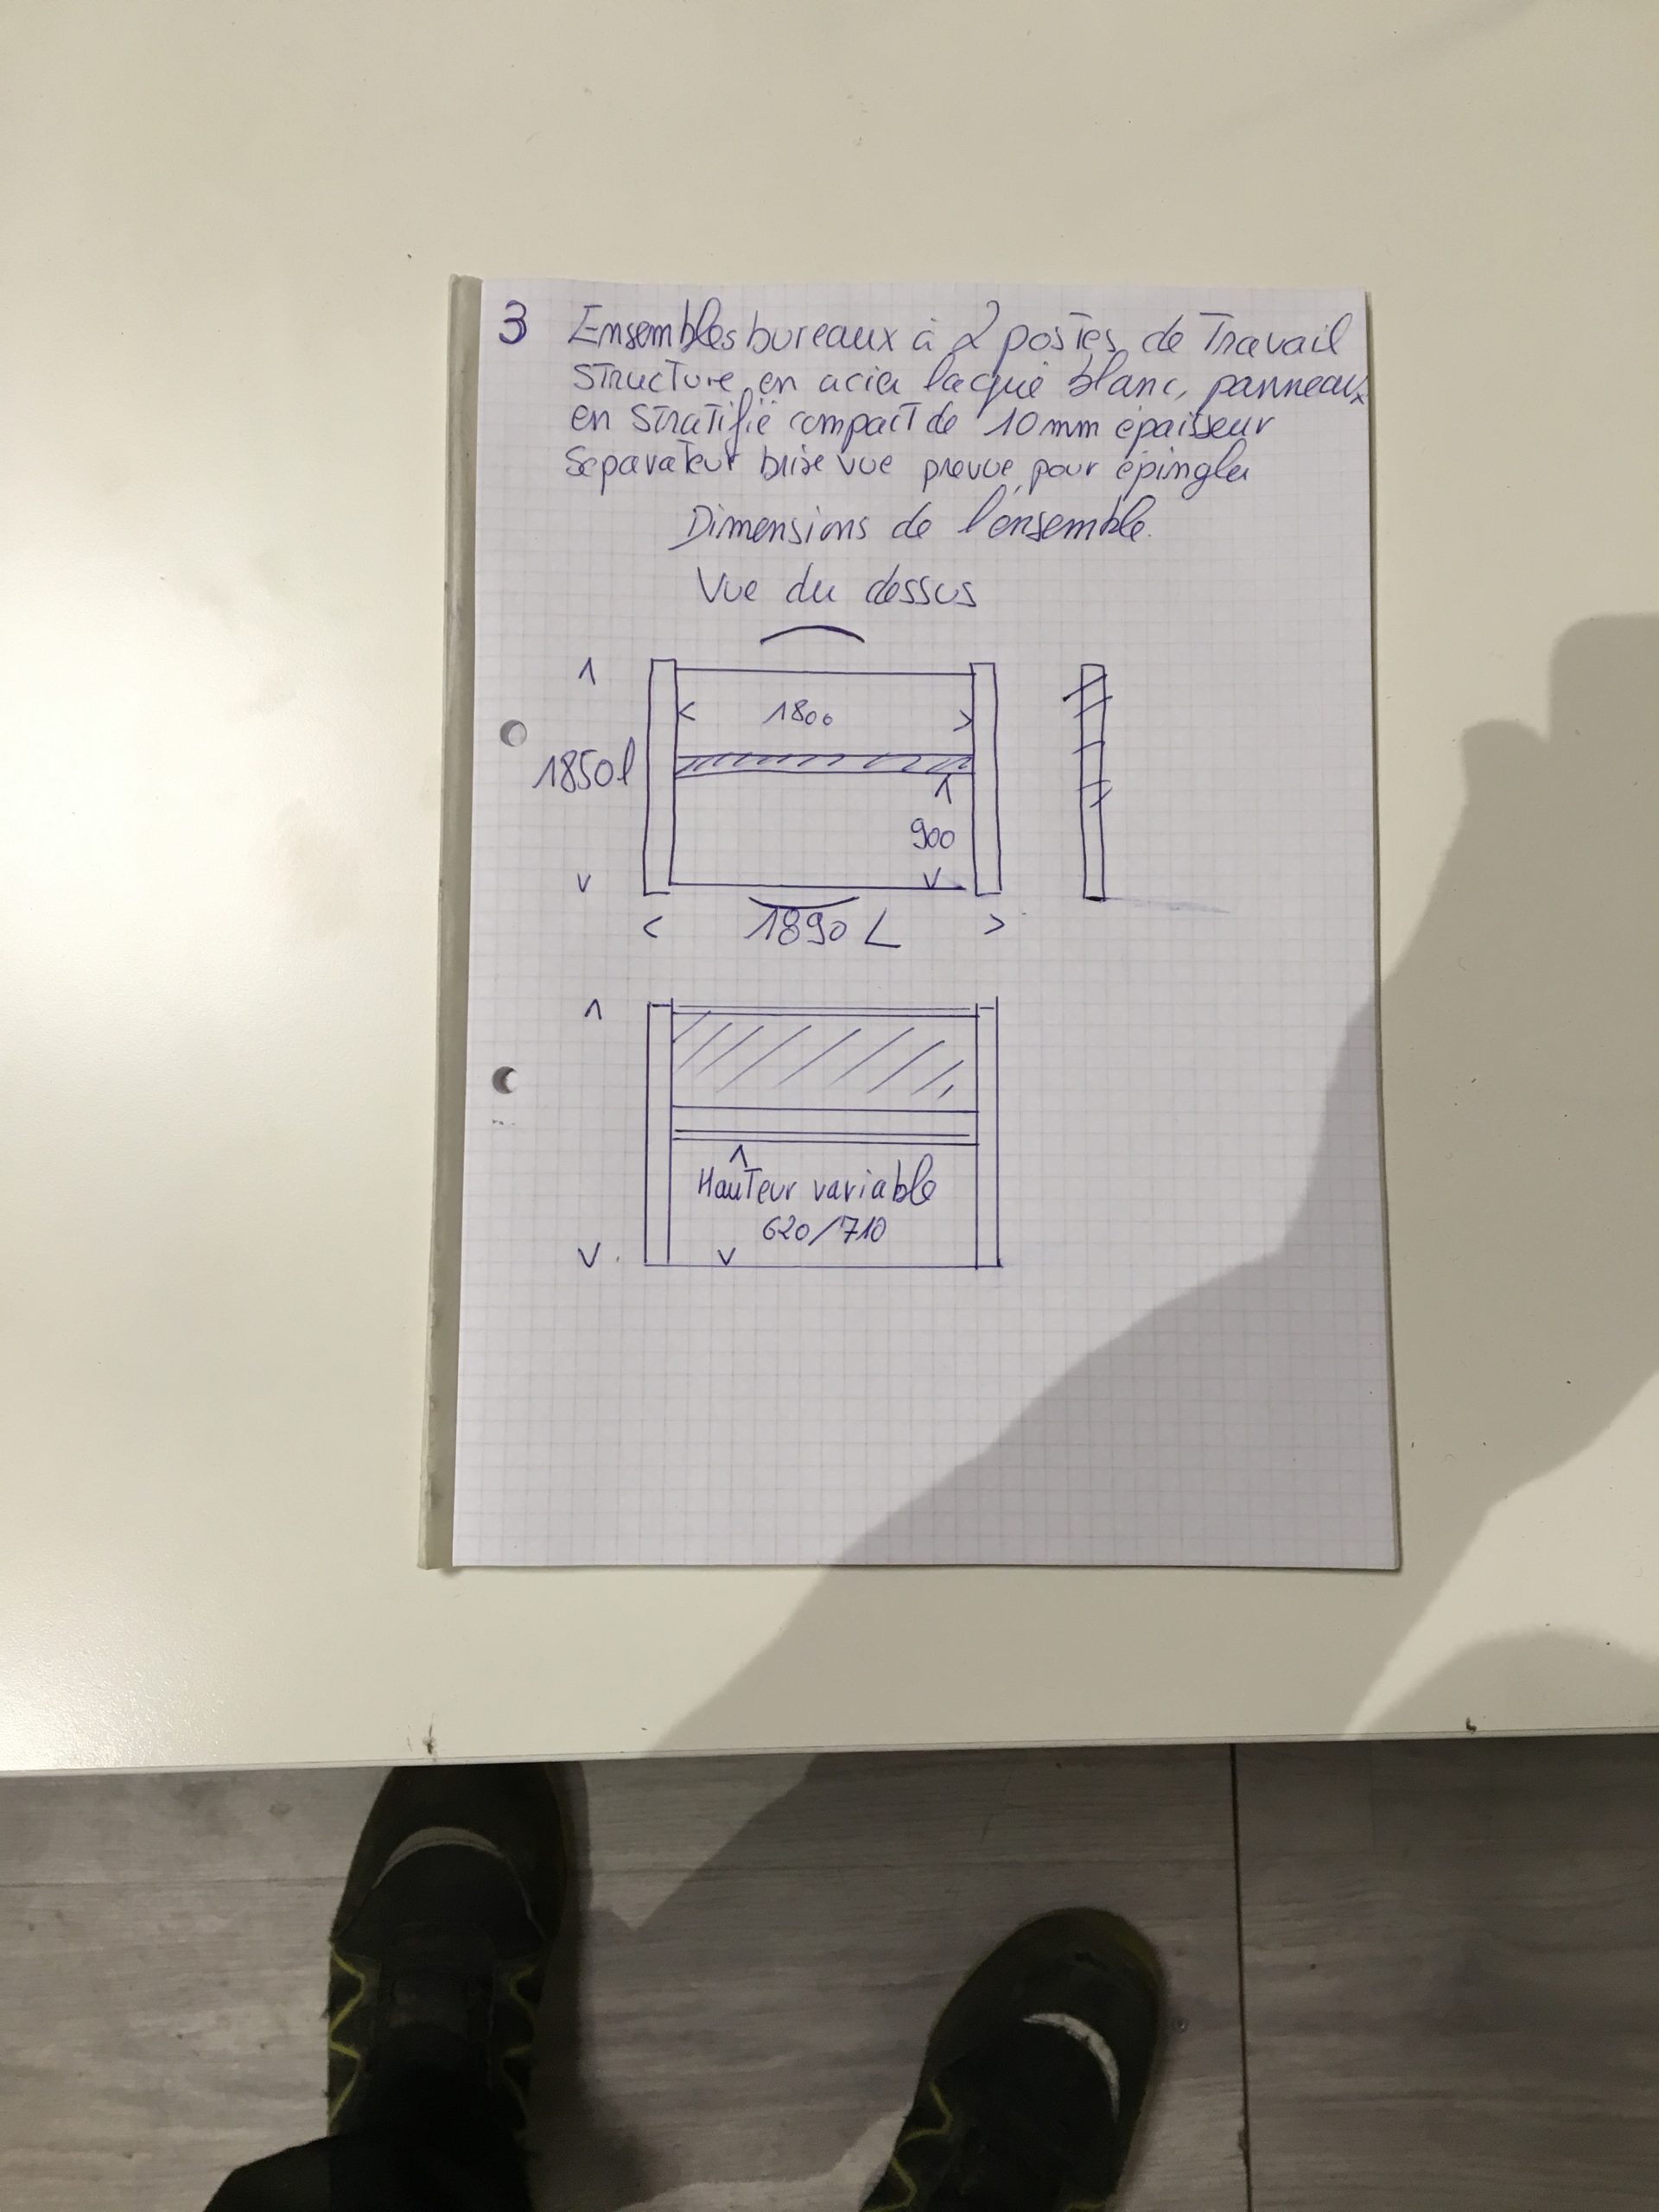 3 Ensembles bureaux à 2 postes de Travail
Structure en acier laqué blanc, panneaux
en stratifié compact de 10mm épaisseur
Separateur brise vue prevue pour épingler
Dimensions de l'ensemble.
Vue du dessus
1800
1850 l
900
1890 L
Hauteur variable
620/710